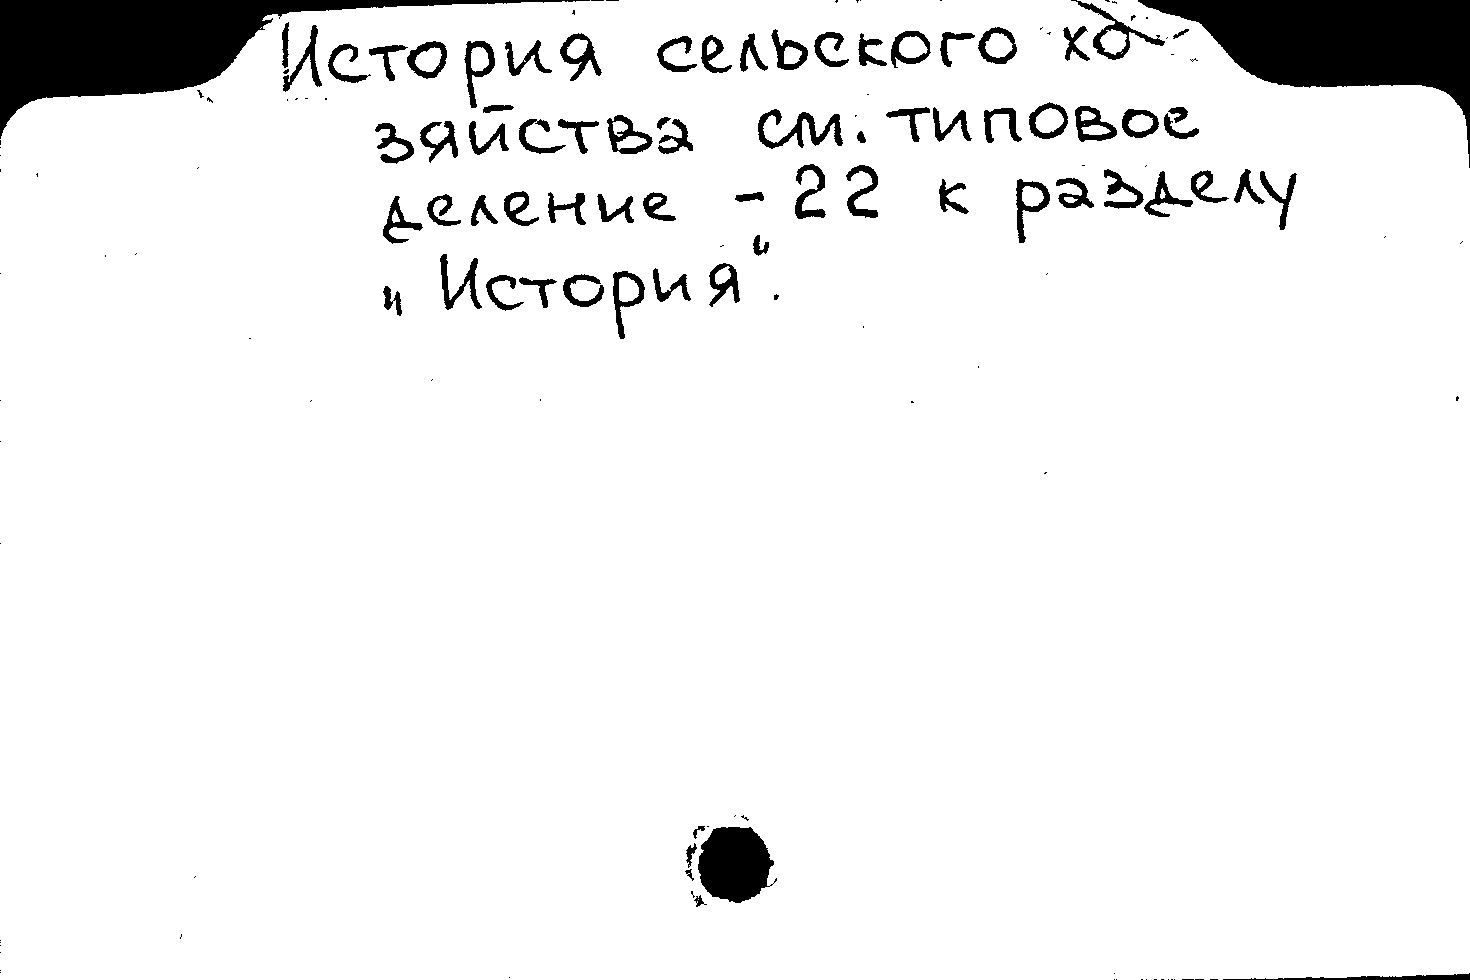 История сельского хо
зяйства см. типовое
деление - 22 к разделу
„История“.